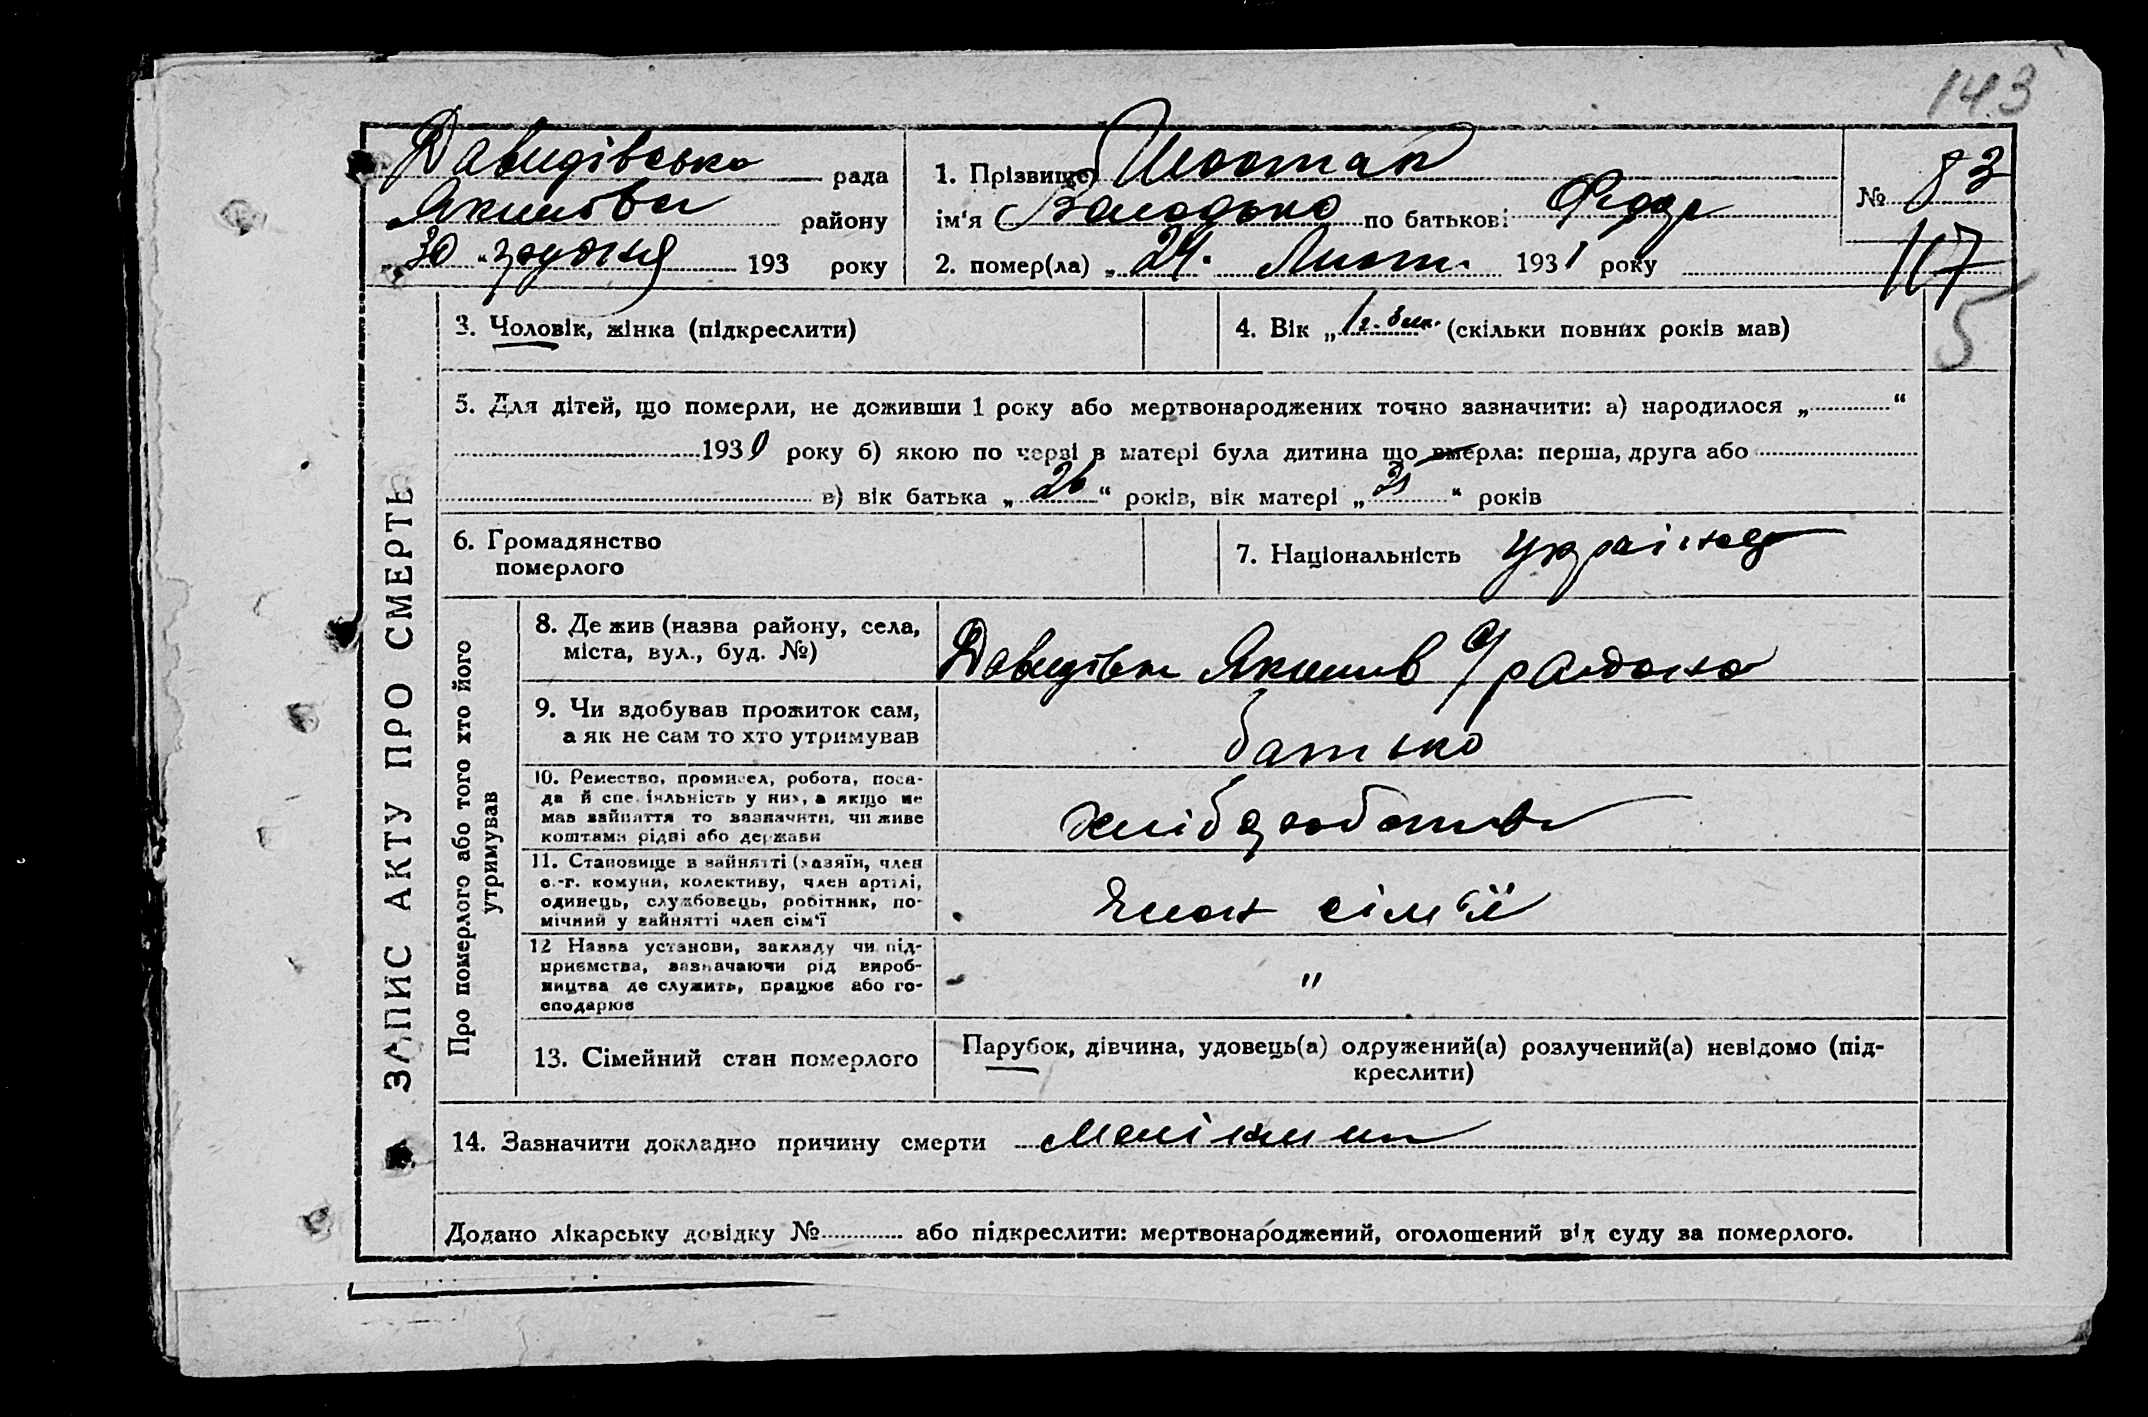 143
Давидівська рада
Якимовськ району
„ 30 " грудня 193 року
1. Прізвище Шостак
ім'я Володько по батькові Федор
2. помер(ла) „ 24. Лют. 1931 року
№ 83
117
5
ЗАПИС АКТУ ПРО СМЕРТЬ
3. Чоловік, жінка (підкреслити)
4. Вік „ 1 г. 8 м. (скільки повних років мав)
5. Для дітей, що померли, не доживши 1 року або мертвонароджених точно зазначити: а) народилося „ “
1930 року б) якою по черзі в матері була дитина що вмерла: перша, друга або
в) вік батька „ 26 “ років, вік матері „ “ років
6. Громадянство
померлого
7. Національність україне
Про померлого або того хто його
утримував
8. Де жив (назва району, села,
міста, вул., буд. №)
Давидівк Якимів
9. Чи здобував прожиток сам,
а як не сам то хто утримував
батько
10. Ремество, промисел, робота, поса-
да й спеціяльність у них, а якщо не
мав зайняття то зазначити, чи живе
коштами рідні або держави
хлібороботив
11. Становище в зайнятті (хазяїн, член
с.-г. комуни, колективу, член артілі,
одинець, службовець, робітник, по-
мічний у зайнятті член сім'ї
Член сім'ї
12 Назва установи, закладу чи під-
приємства, зазначаючи рід вироб-
ництва де служить, працює або го-
сподарює
"
13. Сімейний стан померлого
Парубок, дівчина, удовець(а) одружений(а) розлучений(а) невідомо (під-
креслити)
14. Зазначити докладно причину смерти
Додано лікарську довідку № або підкреслити: мертвонароджений, оголошений від суду за померлого.